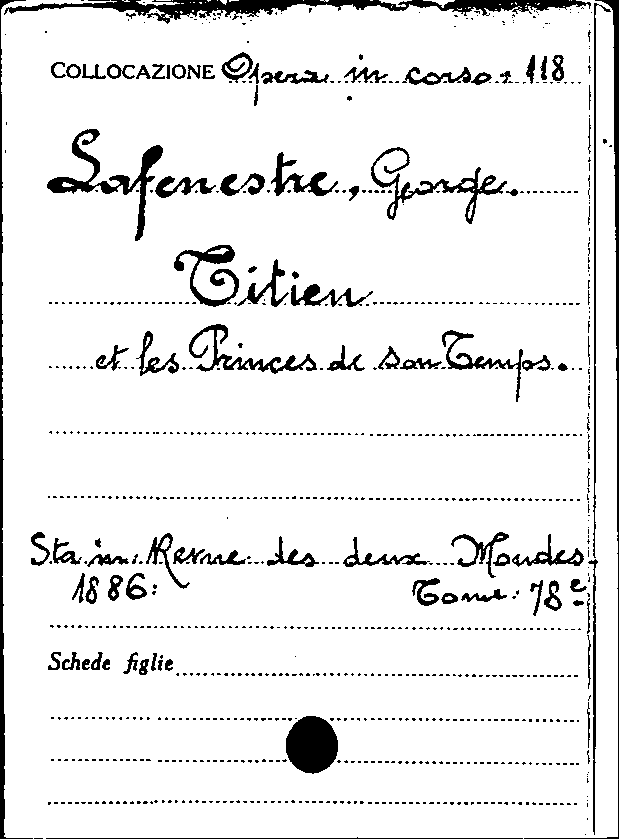 COLLOCAZIONE Opera in corso - 118
Lafenestre, George.
Titien
et les Princes de son Temps.
Sta in: Revue des deux Mondes.
1886: Tome: 78e
Schede figlie